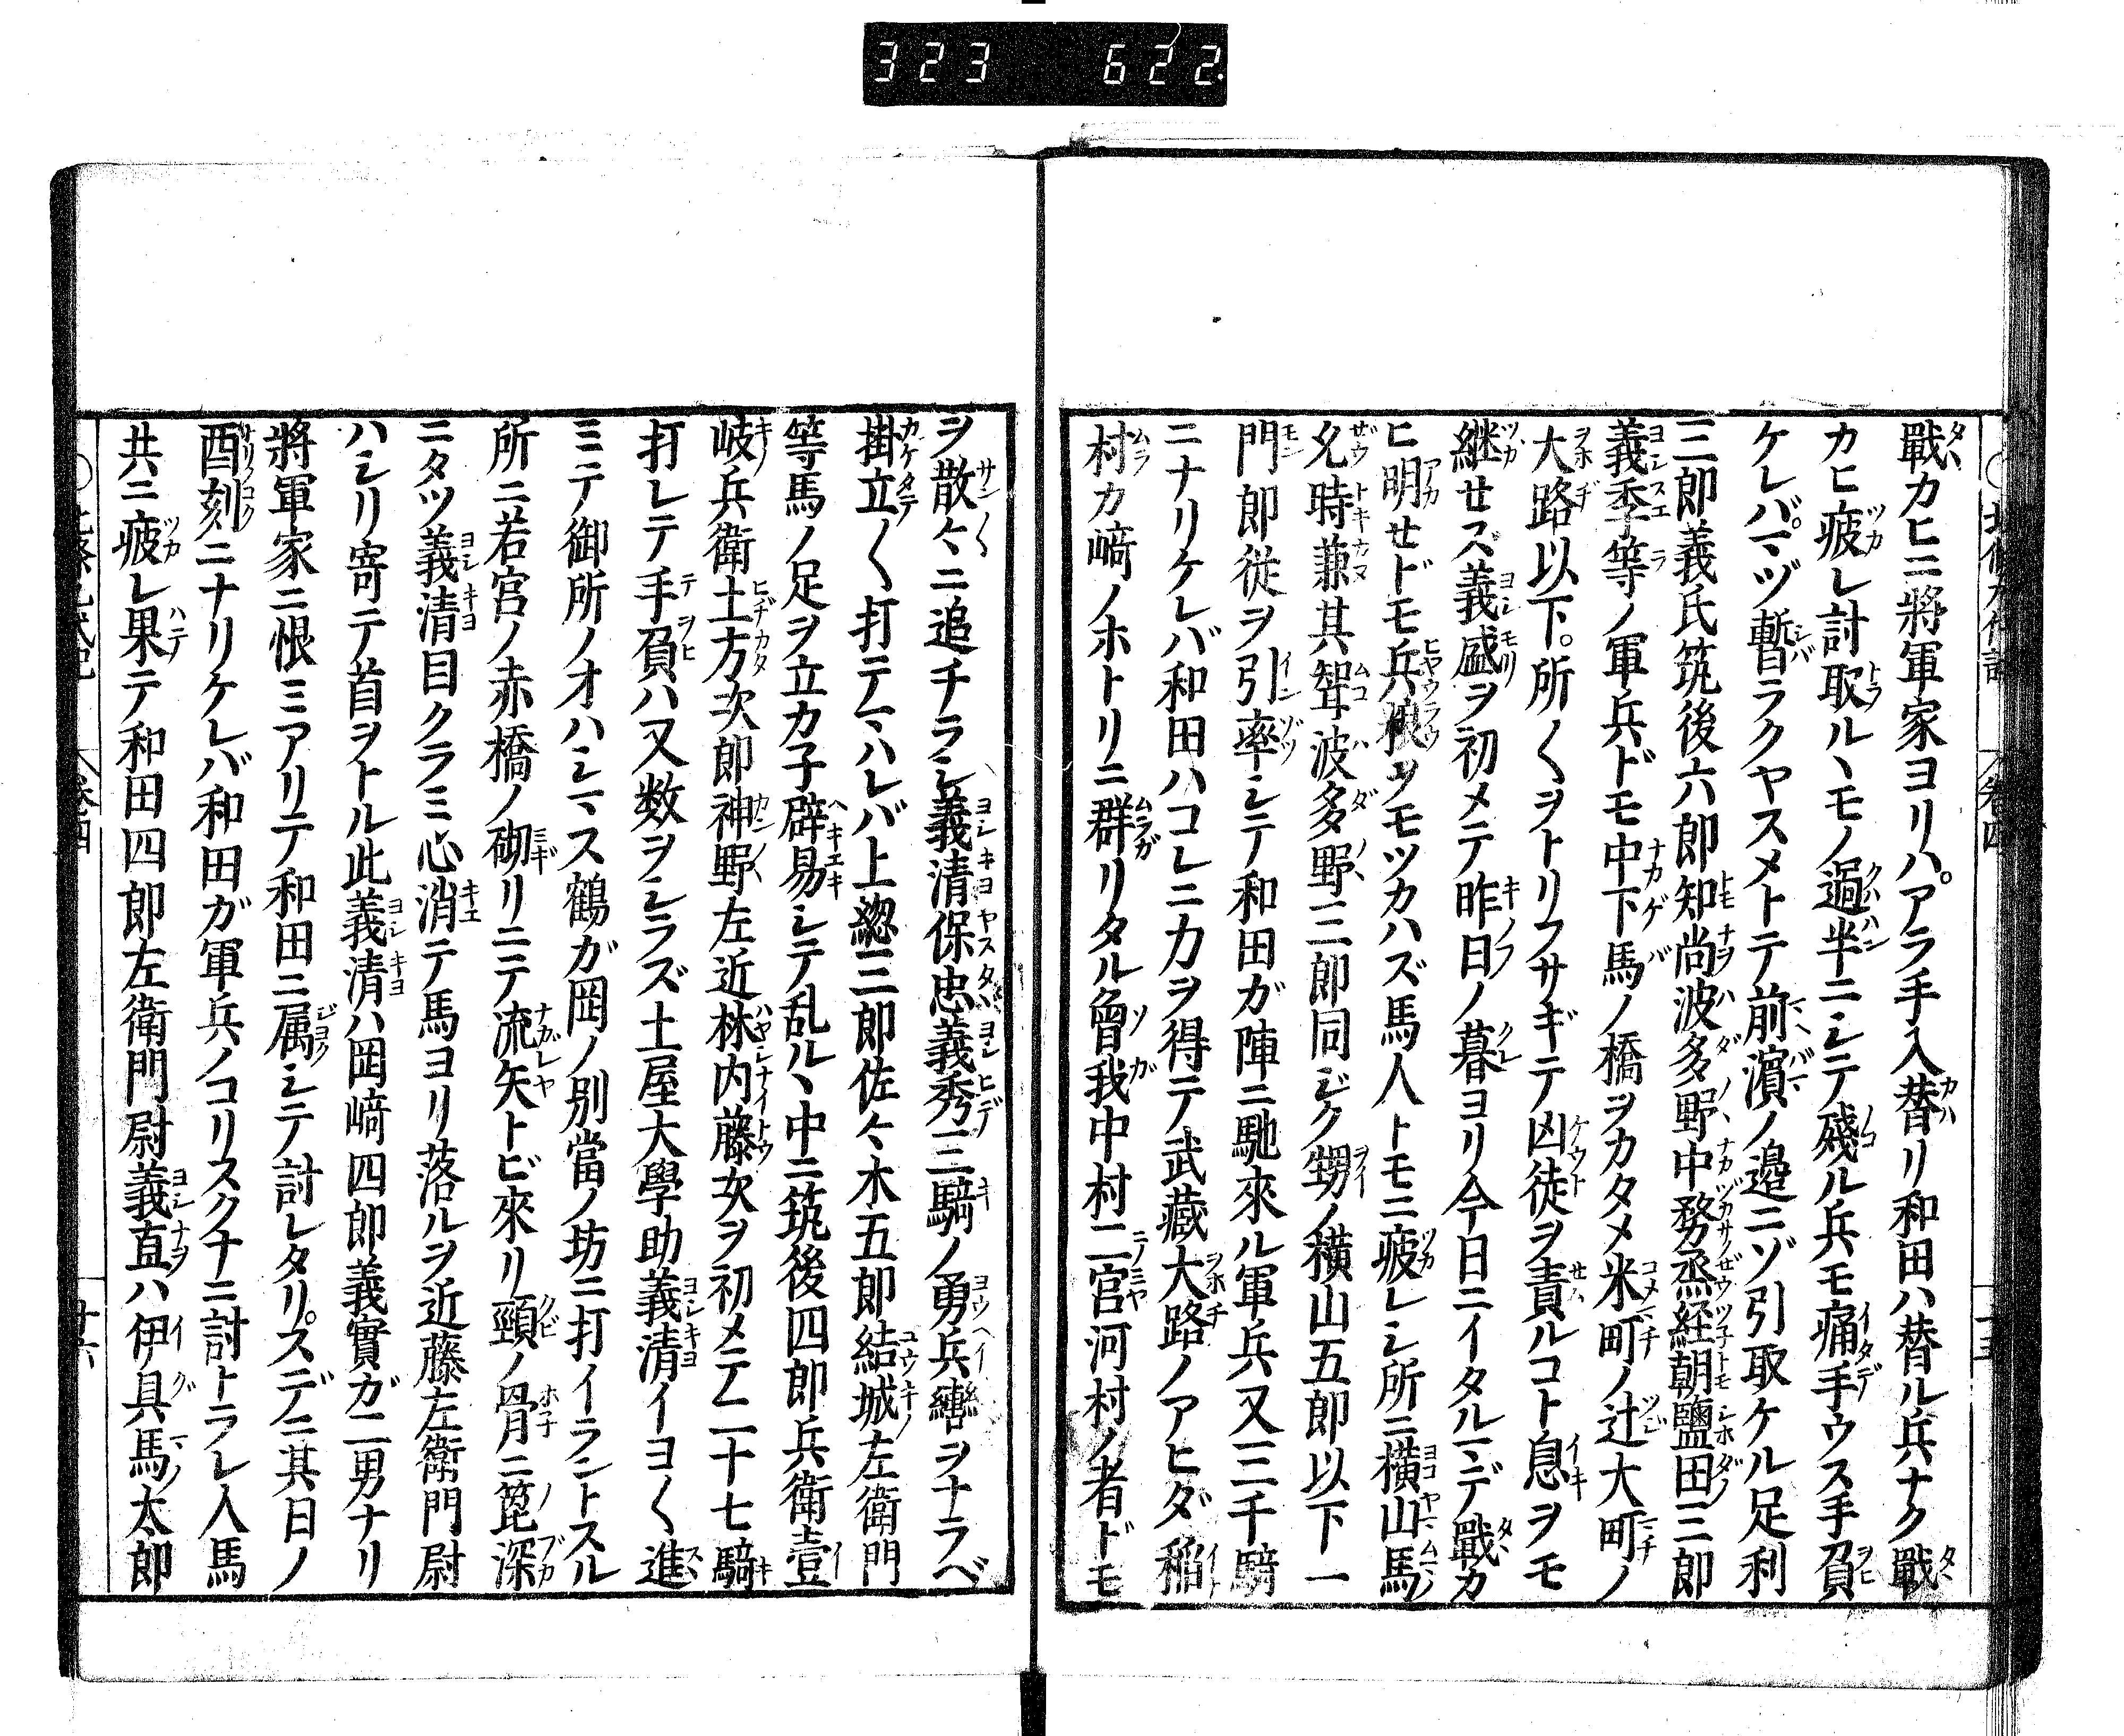 323 622
戰カヒニ將軍家ヨリハ。アラ手入替リ和田ハ替ル兵ナク戰
カヒ疲レ討取ル丶モノ過半ニシテ殘ル兵モ痛手ウス手負
ケレバ。マヅ暫ラクヤスメトテ前濱ノ邉ニゾ引取ケル足利
三郎義氏筑後六郎知尚波多野中務烝経朝鹽田三郎
義季等ノ軍兵ドモ中下馬ノ橋ヲカタメ米町ノ辻大町ノ
大路以下。所〱ヲトリフサギテ凶徒ヲ責ルコト息ヲモ
継セズ義盛ヲ初メテ昨日ノ暮ヨリ今日ニイタルマデ戰カ
ヒ明セドモ兵粮ヲモツカハズ馬人トモニ疲レシ所ニ横山馬
允時兼其聟波多野三郎同ジク甥ノ横山五郎以下一
門郎従ヲ引率シテ和田ガ陣ニ馳來ル軍兵又三千騎
ニナリケレバ和田ハコレニカヲ得テ武藏大路ノアヒダ稲
村カ﨑ノホトリニ群リタル曾我中村二宮河村ノ者ドモ
ヲ散〻ニ追チラシ義清保忠義秀三騎ノ勇兵轡ヲナラベ
掛立〱打テマハレバ上総三郎佐〻木五郎結城左衛門
等馬ノ足ヲ立カ子辟易シテ乱ル丶中ニ筑後四郎兵衛壹
岐兵衛土方次郎神野左近林内藤次ヲ初メテ二十七騎
打レテ手負ハ又数ヲシラズ土屋大學助義清イヨ〱進
ミテ御所ノオハシマス鶴ガ岡ノ別當ノ坊ニ打イラントスル
所ニ若宮ノ赤橋ノ砌リニテ流矢トビ來リ頸ノ骨ニ箆深
ニタツ義清目クラミ心消テ馬ヨリ落ルヲ近藤左衛門尉
ハシリ寄テ首ヲトル此義清ハ岡﨑四郎義實ガ二男ナリ
將軍家ニ恨ミアリテ和田ニ属シテ討レタリ。スデニ其日ノ
酉刻ニナリケレバ和田ガ軍兵ノコリスクナニ討トラレ人馬
共ニ疲レ果テ和田四郎左衛門尉義直ハ伊具馬太郎